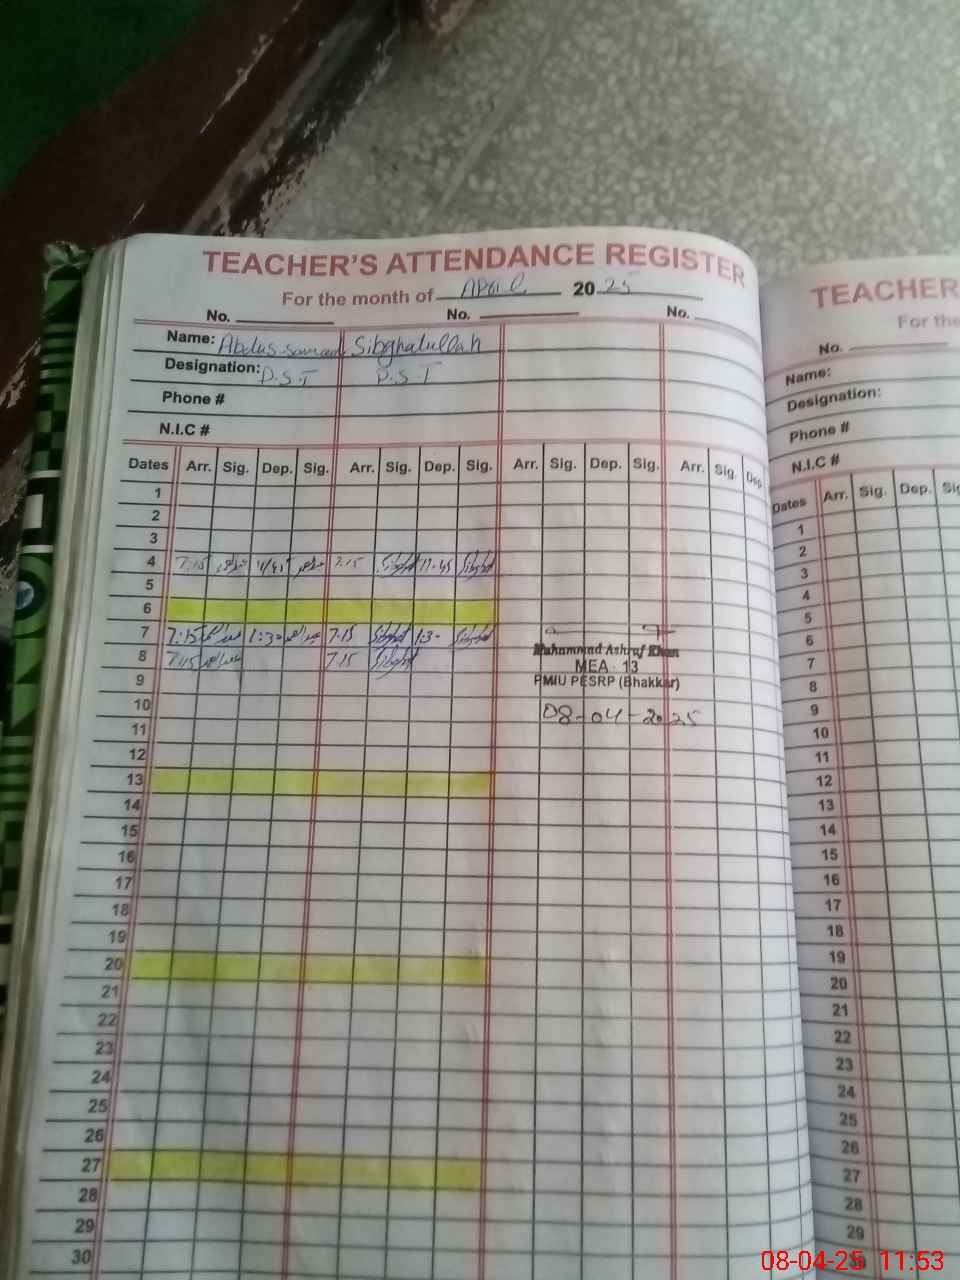 TEACHER'S ATTENDANCE REGISTER
For the month of April 2025
No. No. No.
Name: Abdus-samad Sibghatullah
Designation: P.S.T P.S.T
Phone #
N.I.C #
Dates Arr. Sig. Dep. Sig. Arr. Sig. Dep. Sig. Arr. Sig. Dep. Sig. Arr. Sig. Dep.
1
2
3
4 7:15 7:15 11:45
5
6
7 7:15 1:30 7:15 1:30
8 7:15 7:15
9
10
11
12
13
14
15
16
17
18
19
20
21
22
23
24
25
26
27
28
29
30
Muhammad Ashraf Khan
MEA 13
PMIU PESRP (Bhakkar)
08-04-2025
TEACHER
For the
No.
Name:
Designation:
Phone #
N.I.C #
Dates Arr. Sig. Dep. Sig
1
2
3
4
5
6
7
8
9
10
11
12
13
14
15
16
17
18
19
20
21
22
23
24
25
26
27
28
29
08-04-25 11:53